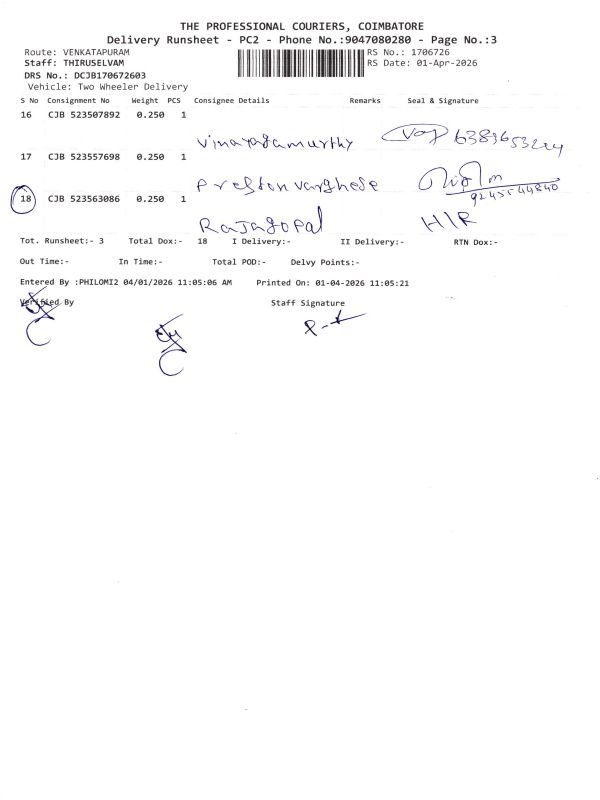 THE PROFESSIONAL COURIERS, COIMBATORE
Delivery Runsheet - PC2 - Phone No.:9047080280 - Page No.:3
Route: VENKATAPURAM RS No.: 1706726
Staff: THIRUSELVAM RS Date: 01-Apr-2026
DRS No.: DCJB170672603
Vehicle: Two Wheeler Delivery
S No Consignment No Weight PCS Consignee Details Remarks Seal & Signature
16 CJB 523507892 0.250 1
Vinayagamurthy
17 CJB 523557698 0.250 1
Preston varghese
9245544840
18 CJB 523563086 0.250 1
Rajagopal H/R
Tot. Runsheet:- 3 Total Dox:- 18 I Delivery:- II Delivery:- RTN Dox:-
Out Time:- In Time:- Total POD:- Delvy Points:-
Entered By :PHILOMI2 04/01/2026 11:05:06 AM Printed On: 01-04-2026 11:05:21
Verified By Staff Signature